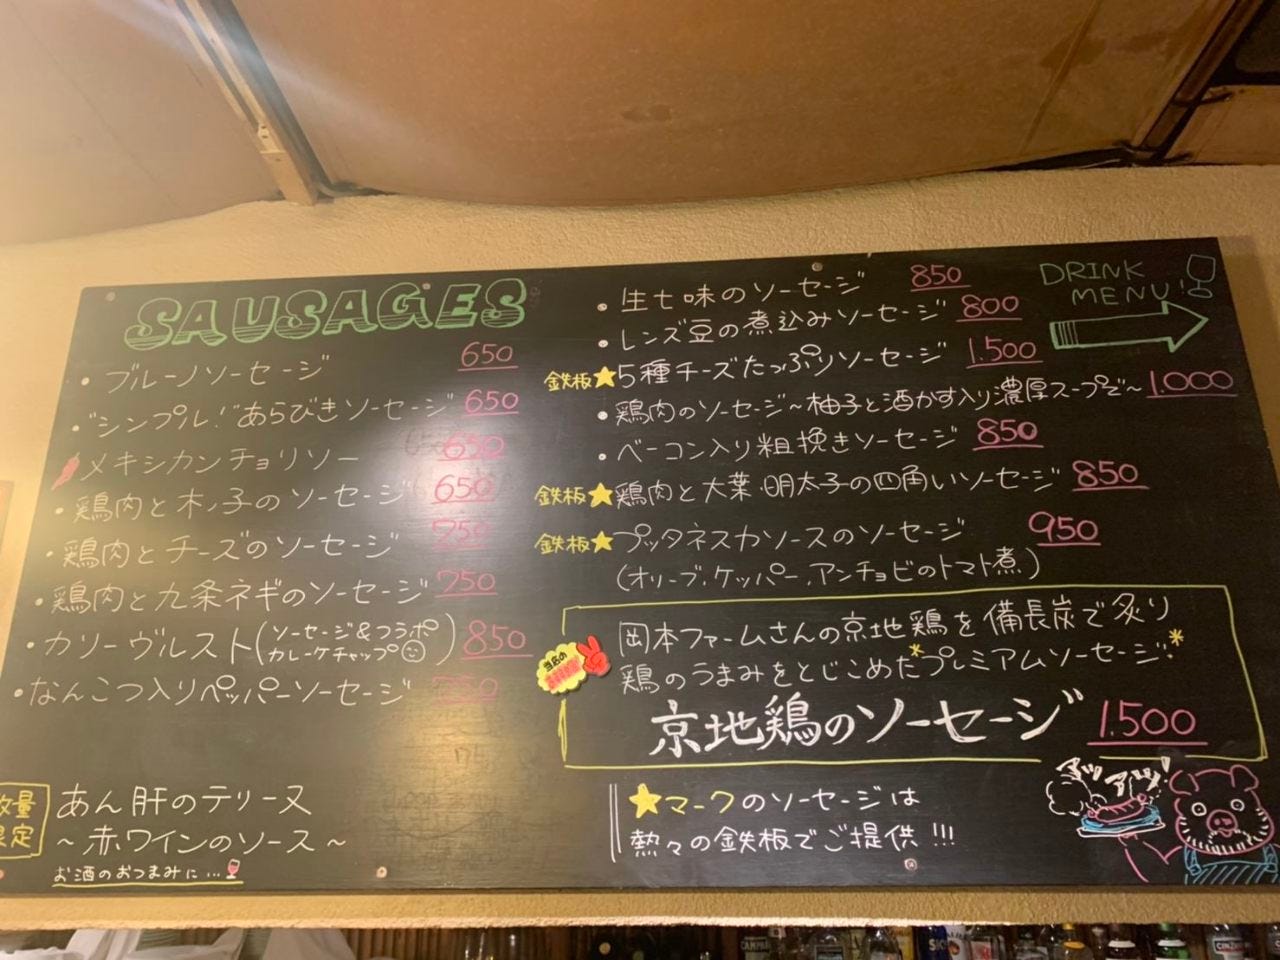 SAUSAGES
・ブルーノソーセージ 650
・"シンプル!"あらびきソーセージ 650
メキシカンチョリソー 650
・鶏肉と木ノ子のソーセージ 650
・鶏肉とチーズのソーセージ 750
・鶏肉と九条ネギのソーセージ 750
・カリーヴルスト(ソーセージ&フラポ 850
カレーケチャップ)
・なんこつ入りペッパーソーセージ
数量
限定
あん肝のテリーヌ
~赤ワインのソース~
お酒のおつまみに…
・生七味のソーセージ 850
・レンズ豆の煮込みソーセージ 800
鉄板★5種チーズたっぷりソーセージ 1.500
・鶏肉のソーセージ~柚子と酒かす入り濃厚スープで~ 1.000
・ベーコン入り粗挽きソーセージ 850
鉄板★鶏肉と大葉・明太子の四角いソーセージ 850
鉄板★プッタネスカソースのソーセージ 950
(オリーブ、ケッパー、アンチョビのトマト煮)
DRINK
MENU!
当店の
岡本ファームさんの京地鶏を備長炭で炙り
鶏のうまみをとじこめた*プレミアムソーセージ*
京地鶏のソーセージ 1.500
★マークのソーセージは
熱々の鉄板でご提供!!!
アツアツ!
CAMPARI
CINZANO